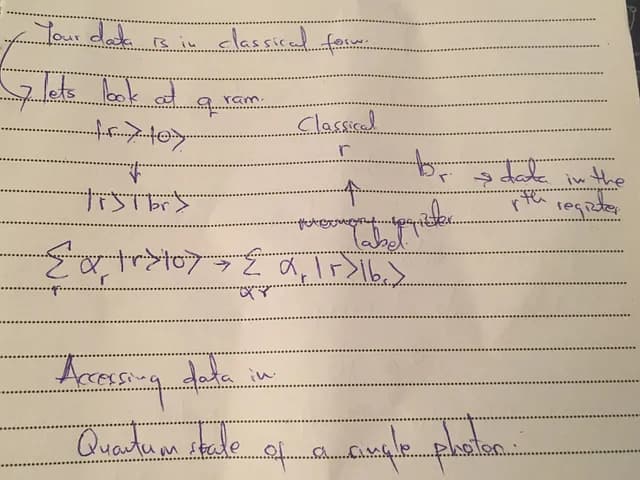 Your data is in classical form.
lets look at q ram.
|r>|0> Classical
↓ r bᵣ → data in the
|r>|bᵣ> ↑ rᵗʰ register
register
label.
∑ᵣ αᵣ |r>|0> → ∑ αᵣ |r>|bᵣ>
Accessing data in.
Quantum state of a single photon.